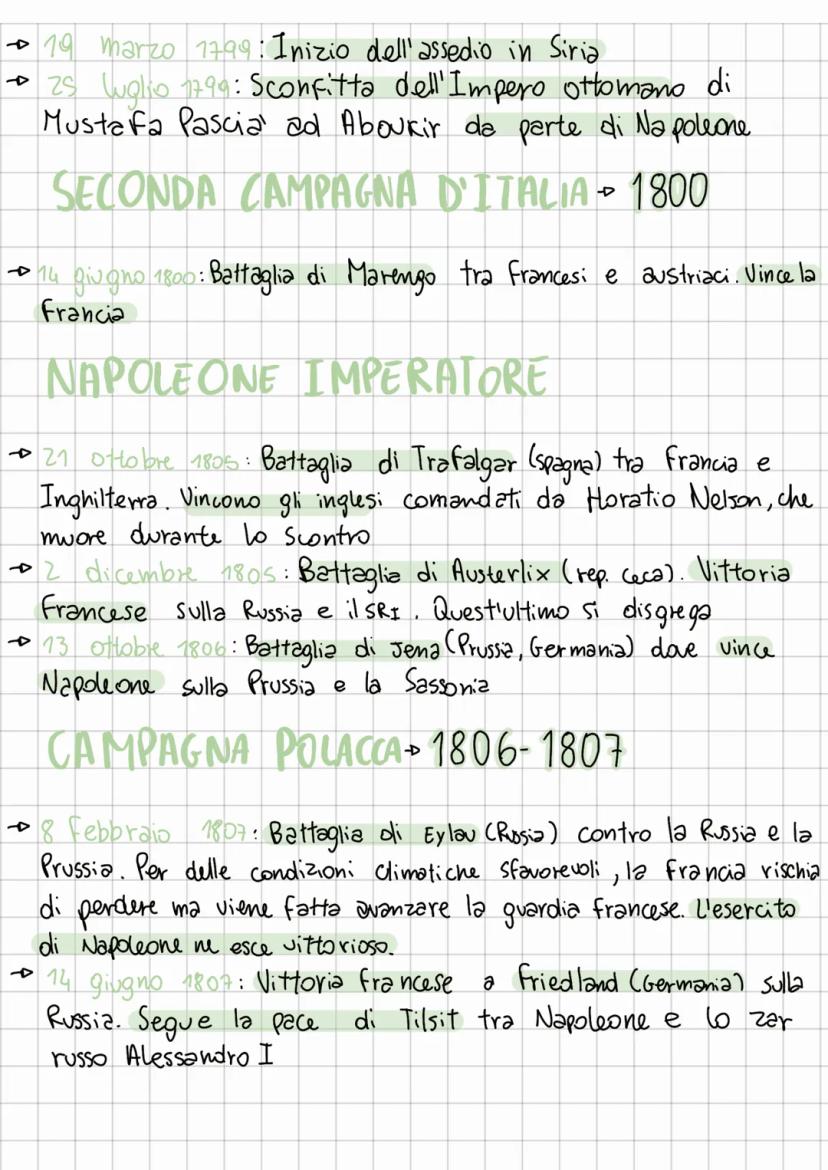 → 19 marzo 1799: Inizio dell'assedio in Siria
→ 25 luglio 1799: Sconfitta dell'Impero ottomano di
Mustafa Pascià ad Aboukir da parte di Napoleone
SECONDA CAMPAGNA D'ITALIA → 1800
→ 14 giugno 1800: Battaglia di Marengo tra francesi e austriaci. Vince la
Francia
NAPOLEONE IMPERATORE
→ 21 ottobre 1805: Battaglia di Trafalgar (spagna) tra Francia e
Inghilterra. Vincono gli inglesi comandati da Horatio Nelson, che
muore durante lo scontro
→ 2 dicembre 1805: Battaglia di Austerlix (rep. ceca). Vittoria
Francese sulla Russia e il SRI. Quest'ultimo si disgrega
→ 13 ottobre 1806: Battaglia di Jena (Prussia, Germania) dove vince
Napoleone sulla Prussia e la Sassonia
CAMPAGNA POLACCA → 1806-1807
→ 8 Febbraio 1807: Battaglia di Eylau (Russia) contro la Russia e la
Prussia. Per delle condizioni climatiche sfavorevoli, la Francia rischia
di perdere ma viene fatta avanzare la guardia francese. L'esercito
di Napoleone ne esce vittorioso.
→ 14 giugno 1807: Vittoria francese a Friedland (Germania) sulla
Russia. Segue la pace di Tilsit tra Napoleone e lo zar
russo Alessandro I